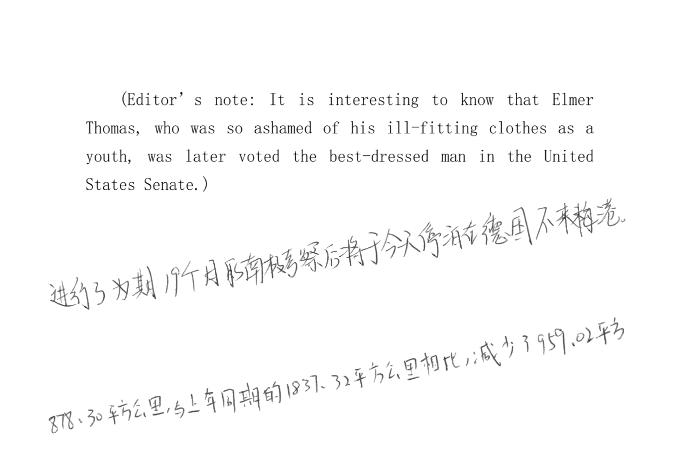 (Editor’s note: It is interesting to know that Elmer
Thomas, who was so ashamed of his ill-fitting clothes as a
youth, was later voted the best-dressed man in the United
States Senate.)
进行了为期19个月的南极考察后将于今天停泊在德国不来梅港。
878.30平方公里,与上年同期的1837.32平方公里相比,减少了959.02平方